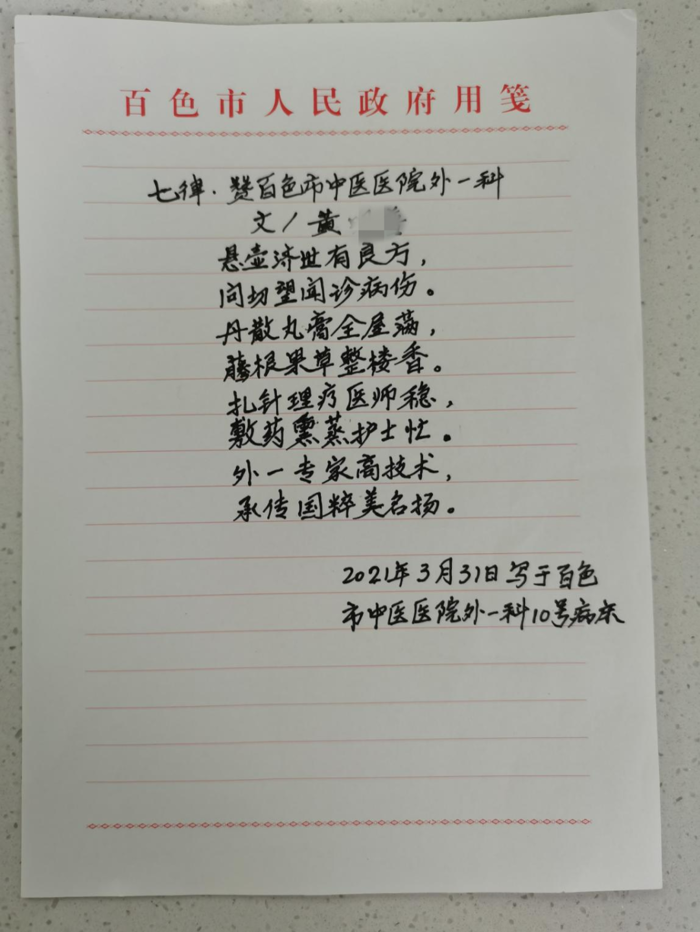 百色市人民政府用笺
七律·赞百色市中医医院外一科
文/黄
悬壶济世有良方，
问切望闻诊病伤。
丹散丸膏全屋满，
藤根果草整楼香。
扎针理疗医师稳，
敷药熏蒸护士忙。
外一专家高技术，
承传国粹美名扬。
2021年3月31日写于百色
市中医医院外一科10号病床